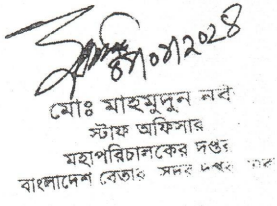 মোঃ মাহমুদুন নব
স্টাফ অফিসার
মহাপরিচালকের দপ্তর
বাংলাদেশ বেতার সদর দপ্তর